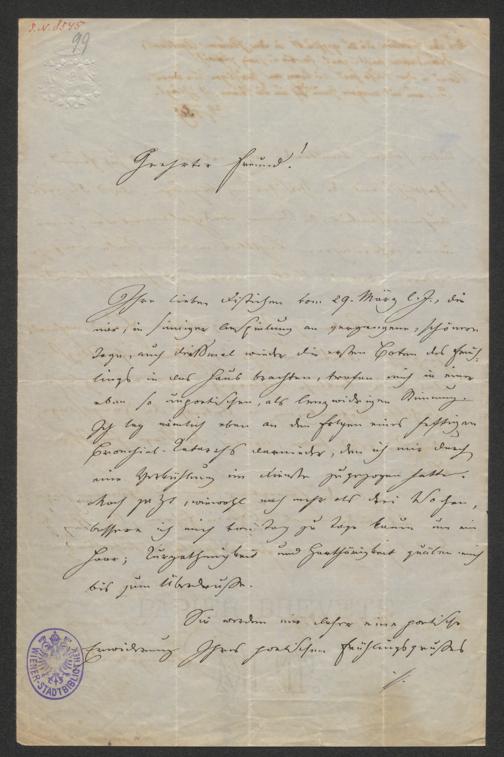 J. N. 8545
99
Geehrter Freund!
Ihre lieben Distichen vom 29. März l. J., die
mir, in sinniger Anspielung an vergangene, schönere
Tage, auch dießmal wieder die ersten Boten des Früh-
lings in das Haus brachten, trafen mich in einer
eben so unpoetischen, als lenzwidrigen Stimmung.
Ich lag nämlich eben an den Folgen eines heftigen
Bronchial-Katarrhs darnieder, den ich mir durch
eine Verkühlung im Dienste zugezogen hatte.
Noch jetzt, wiewohl nach mehr als drei Wochen,
bessere ich mich von Tag zu Tage kaum um ein
Haar; Kurzathmigkeit und Harthörigkeit quälen mich
bis zum Überdrusse.
Sie werden mir daher eine poetische
Erwiderung Ihres poetischen Frühlingsgrußes
WIENER-STADTBIBLIOTHEK